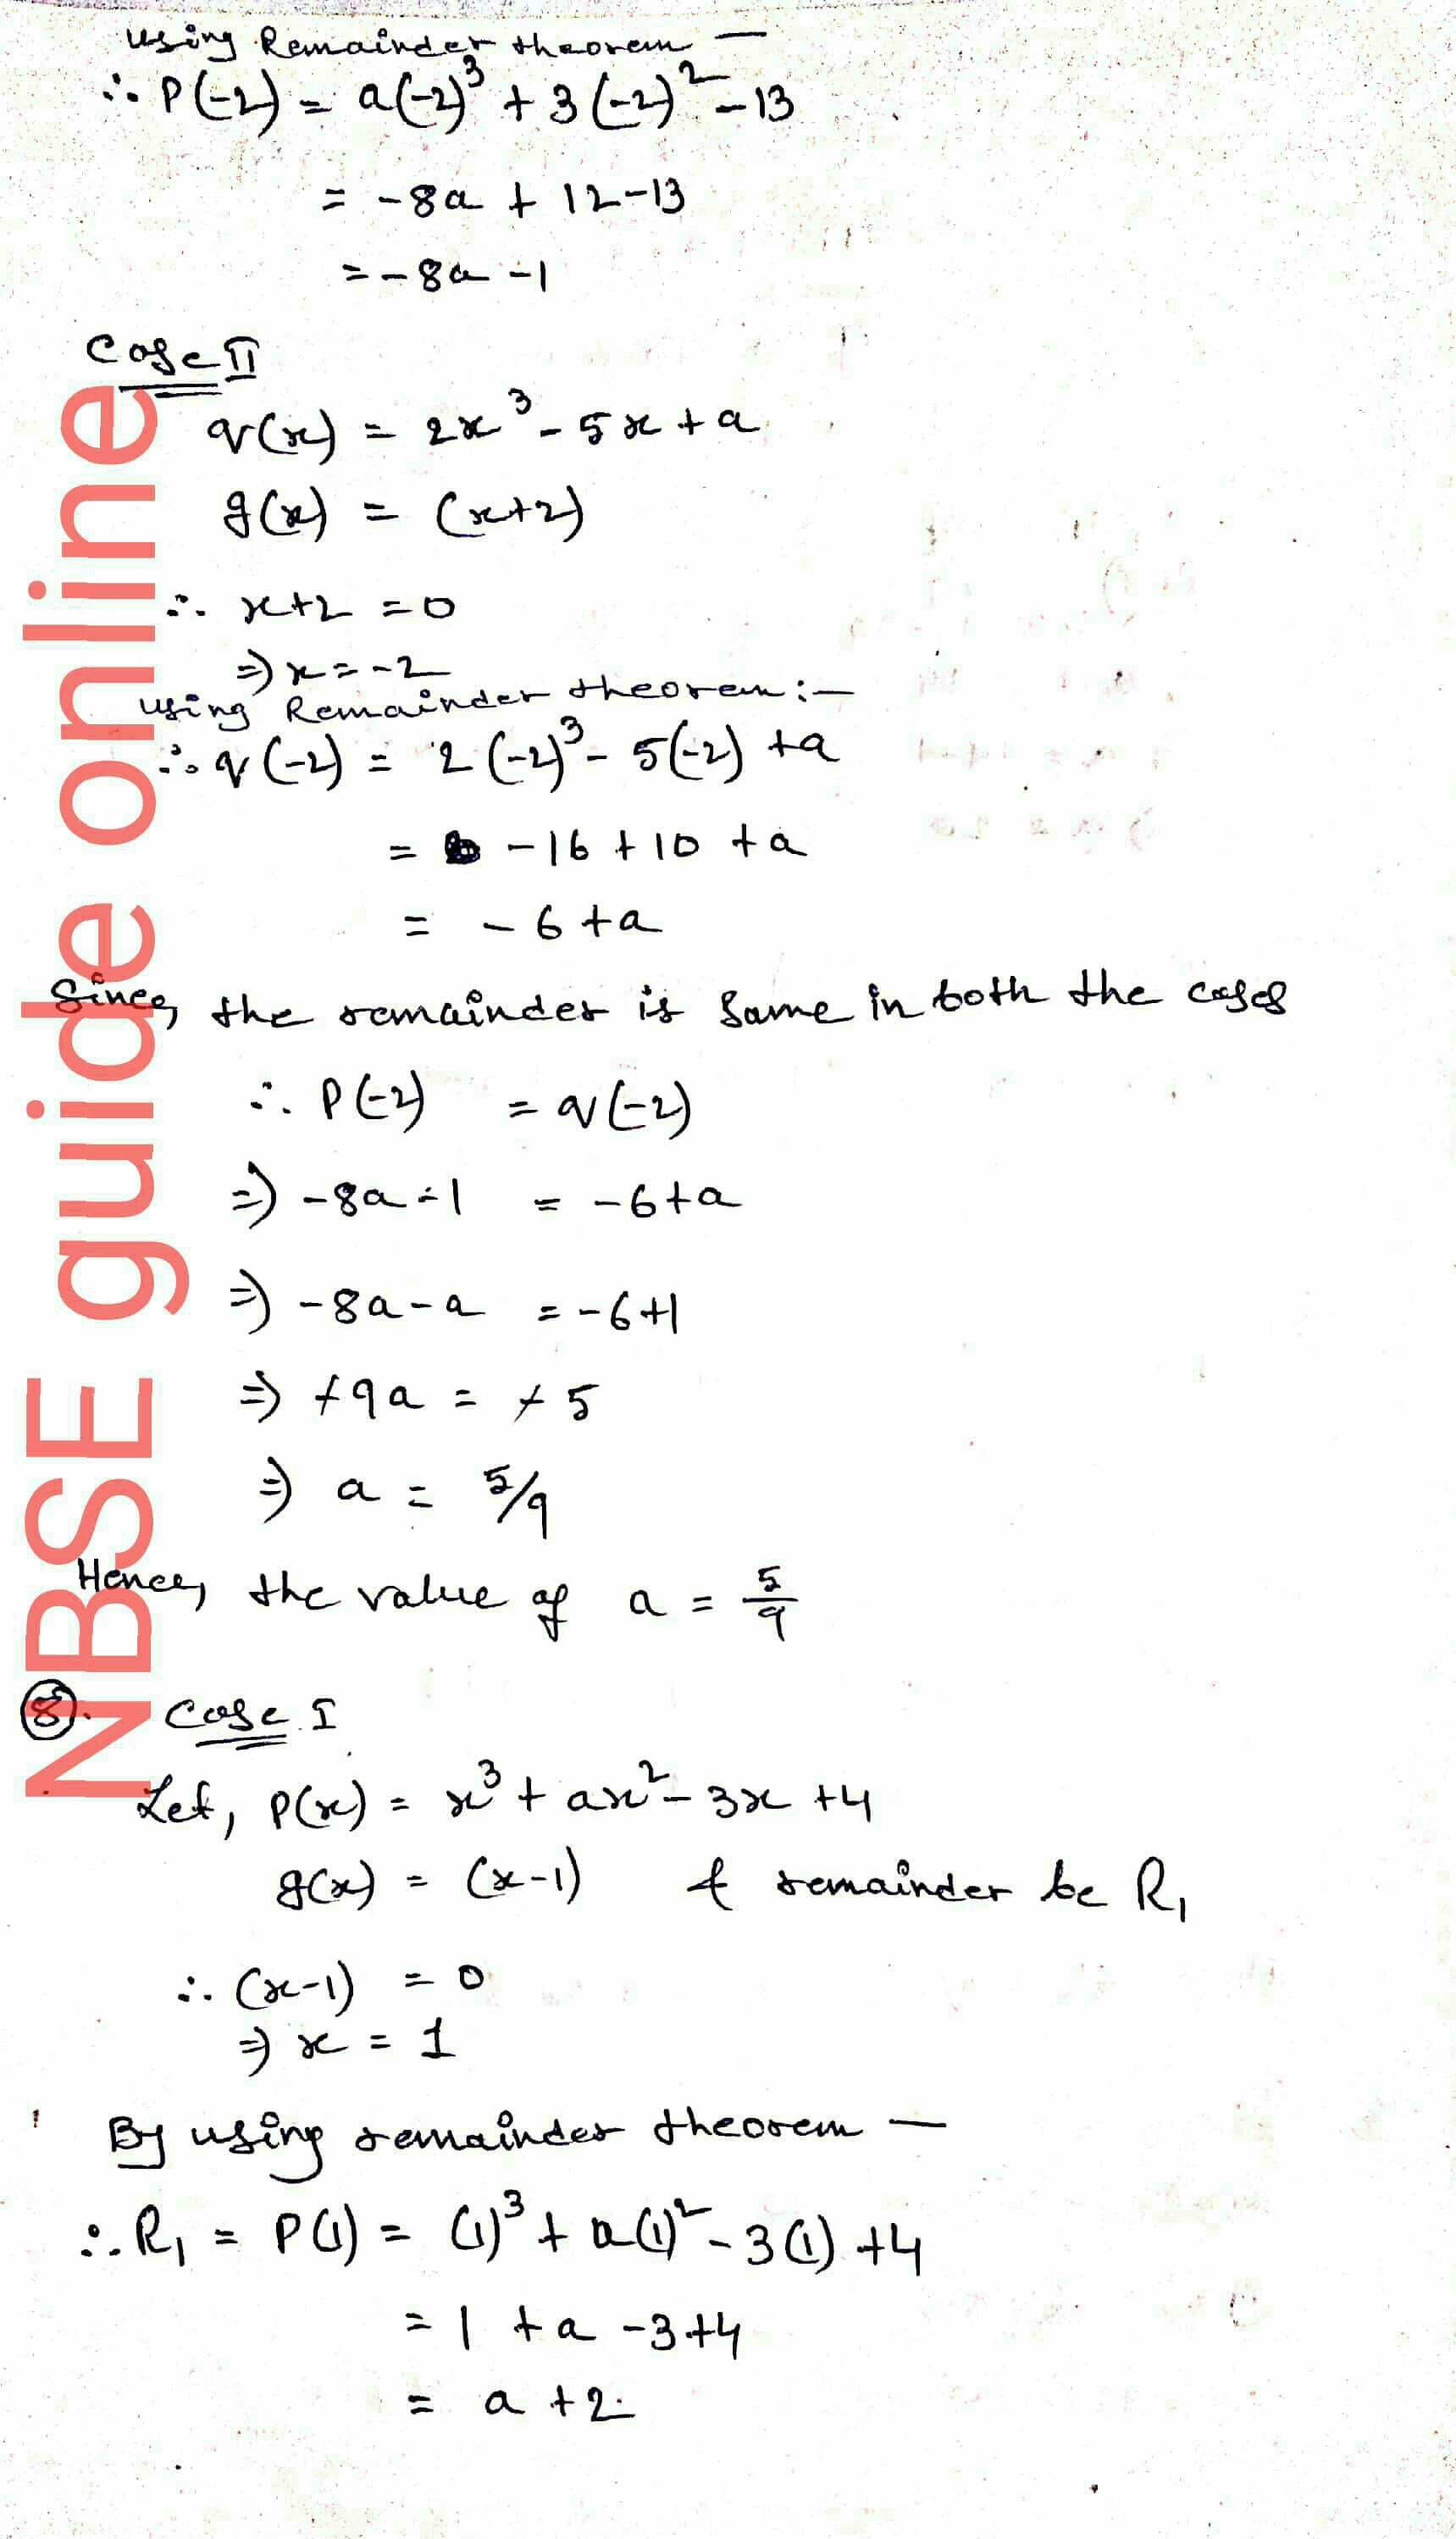 using Remainder theorem —
∴ P(-2) = a(-2)³ + 3(-2)² - 13
= -8a + 12-13
= -8a -1
Case II
q(x) = 2x³ - 5x + a
g(x) = (x+2)
∴ x+2 = 0
⇒ x = -2
using Remainder theorem :—
∴ q(-2) = 2(-2)³ - 5(-2) + a
= -16 + 10 + a
= -6 + a
Since, the remainder is same in both the cases
∴ P(-2) = q(-2)
⇒ -8a - 1 = -6 + a
⇒ -8a - a = -6+1
⇒ +9a = +5
⇒ a = 5/9
Hence, the value of a = 5/9
8. Case I
Let, P(x) = x³ + ax² - 3x + 4
g(x) = (x-1) & remainder be R₁
∴ (x-1) = 0
⇒ x = 1
By using remainder theorem —
∴ R₁ = P(1) = (1)³ + a(1)² - 3(1) + 4
= 1 + a - 3 + 4
= a + 2
NBSE guide online